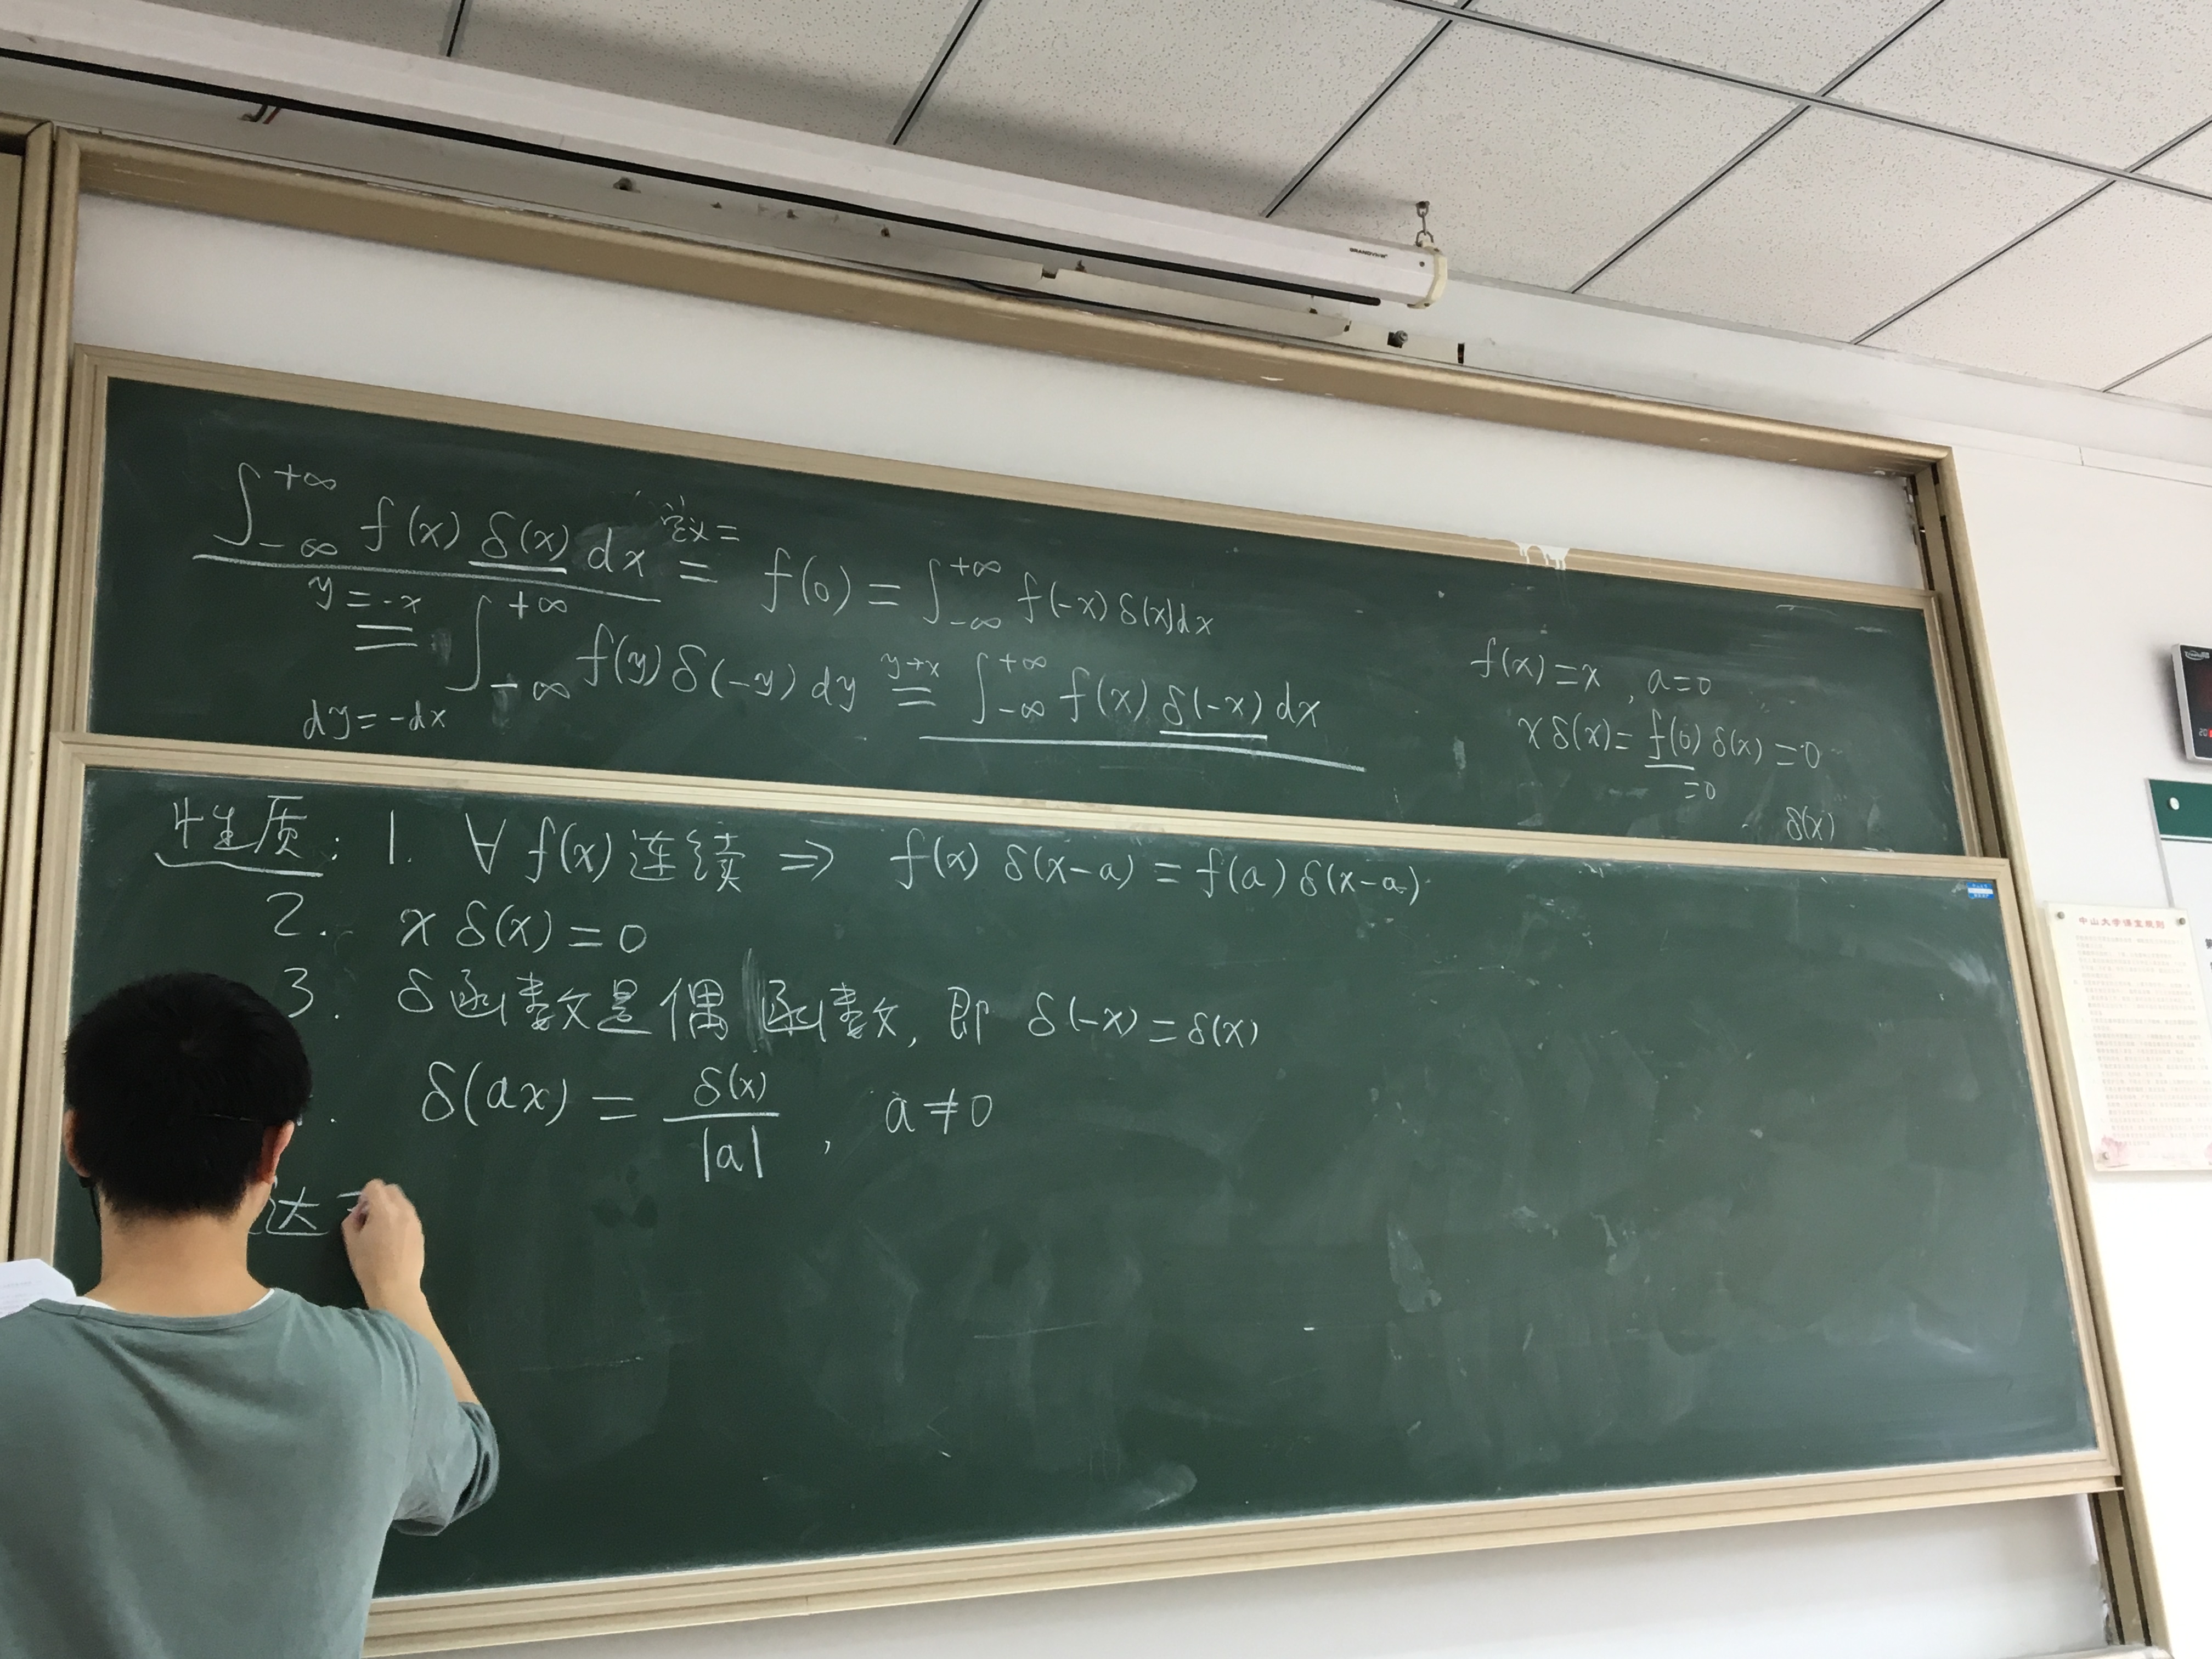 GRANDVIEW
∫_{-∞}^{+∞} f(x) δ(x) dx 定义= = f(0) = ∫_{-∞}^{+∞} f(-x) δ(x) dx
y=-x
= ∫_{-∞}^{+∞} f(y) δ(-y) dy y→x = ∫_{-∞}^{+∞} f(x) δ(-x) dx
dy=-dx
f(x)=x , a=0
x δ(x)= f(0) δ(x) =0
=0
δ(x)
性质: 1. ∀ f(x) 连续 ⇒ f(x) δ(x-a) = f(a) δ(x-a)
2. x δ(x) = 0
3. δ函数是偶函数, 即 δ(-x) = δ(x)
. δ(ax) = δ(x)/|a| , a≠0
达
中山大学课室规则